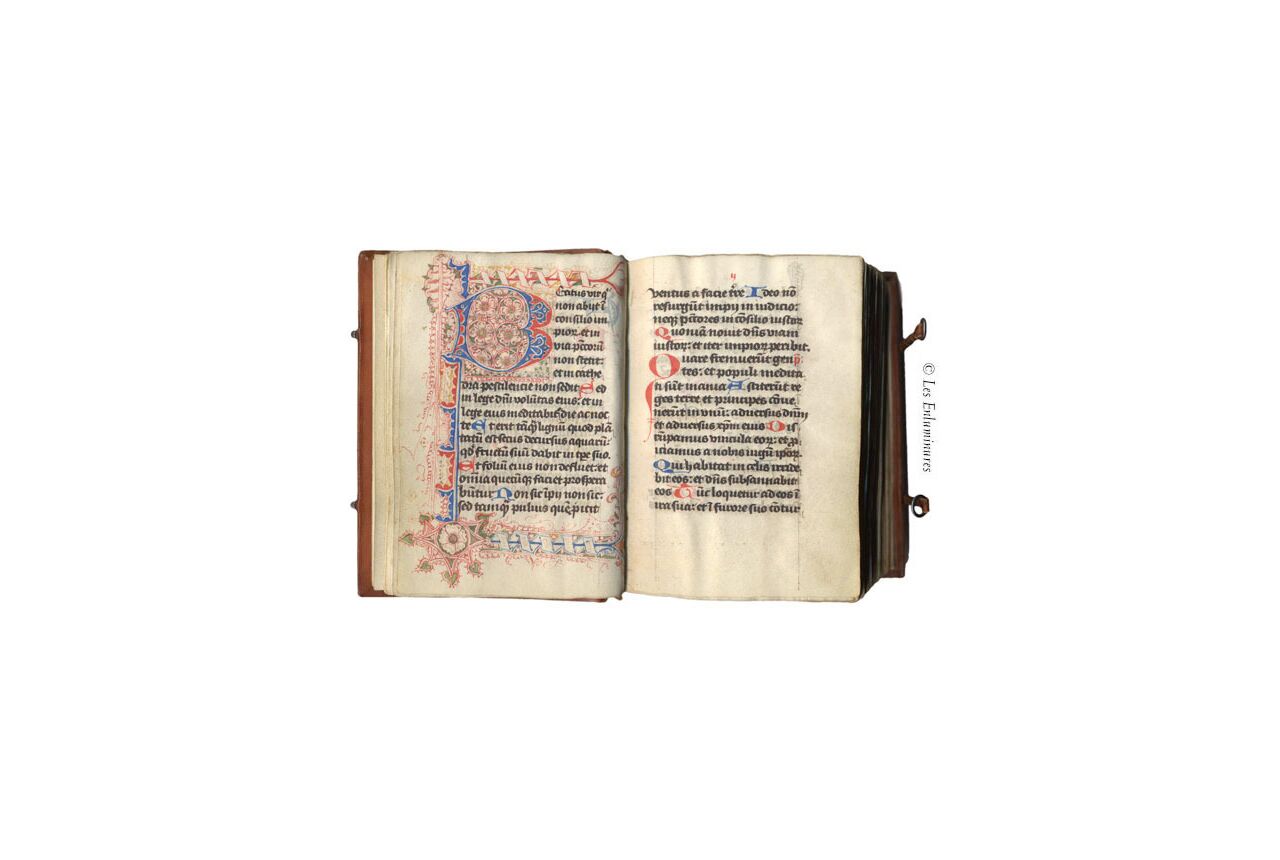 Beatus vir q̄
non abijt ī
consilio im
pior. et in
via pctōrū
non stetit:
et in cathe
dra pestilencie non sedit Sed
in lege dn̄i volūtas eius: et in
lege eius meditabit̄ die ac noc
te Et erit tāqȝ lignū quod plā
tatū est secus decursus aquarū:
qd̓ fructū suū dabit in tpe suo.
Et foliū eius non defluet: et
omīa quecūqȝ faciet prospera
būtur Non sic īpij non sic:
sed tamqȝ puluis quē ꝓicit
ij
ventus a facie tr̄re Ideo nō
resurgūt impij in iudicio:
neqȝ pctores in cōsilio iustoꝝ
Quoniā nouit dn̄s viam
iustoꝝ: et iter impioꝝ peribit.
Quare fremuerūt gen
tes: et populi medita
ti sūt inania Astiterūt re
ges terre et principes cōue
nerūt in vnū: aduersus dn̄m
et aduersus xp̄m eius Dis
rūpamus vincula eoꝝ: et ꝓ
iciamus a nobis iugū ipoꝝ
Qui habitat in celis irride
bit eos: et dn̄s subsannabit
eos Tūc loquetur ad eos ī
ira sua: et ī furore suo cōtur
© Les Enluminures